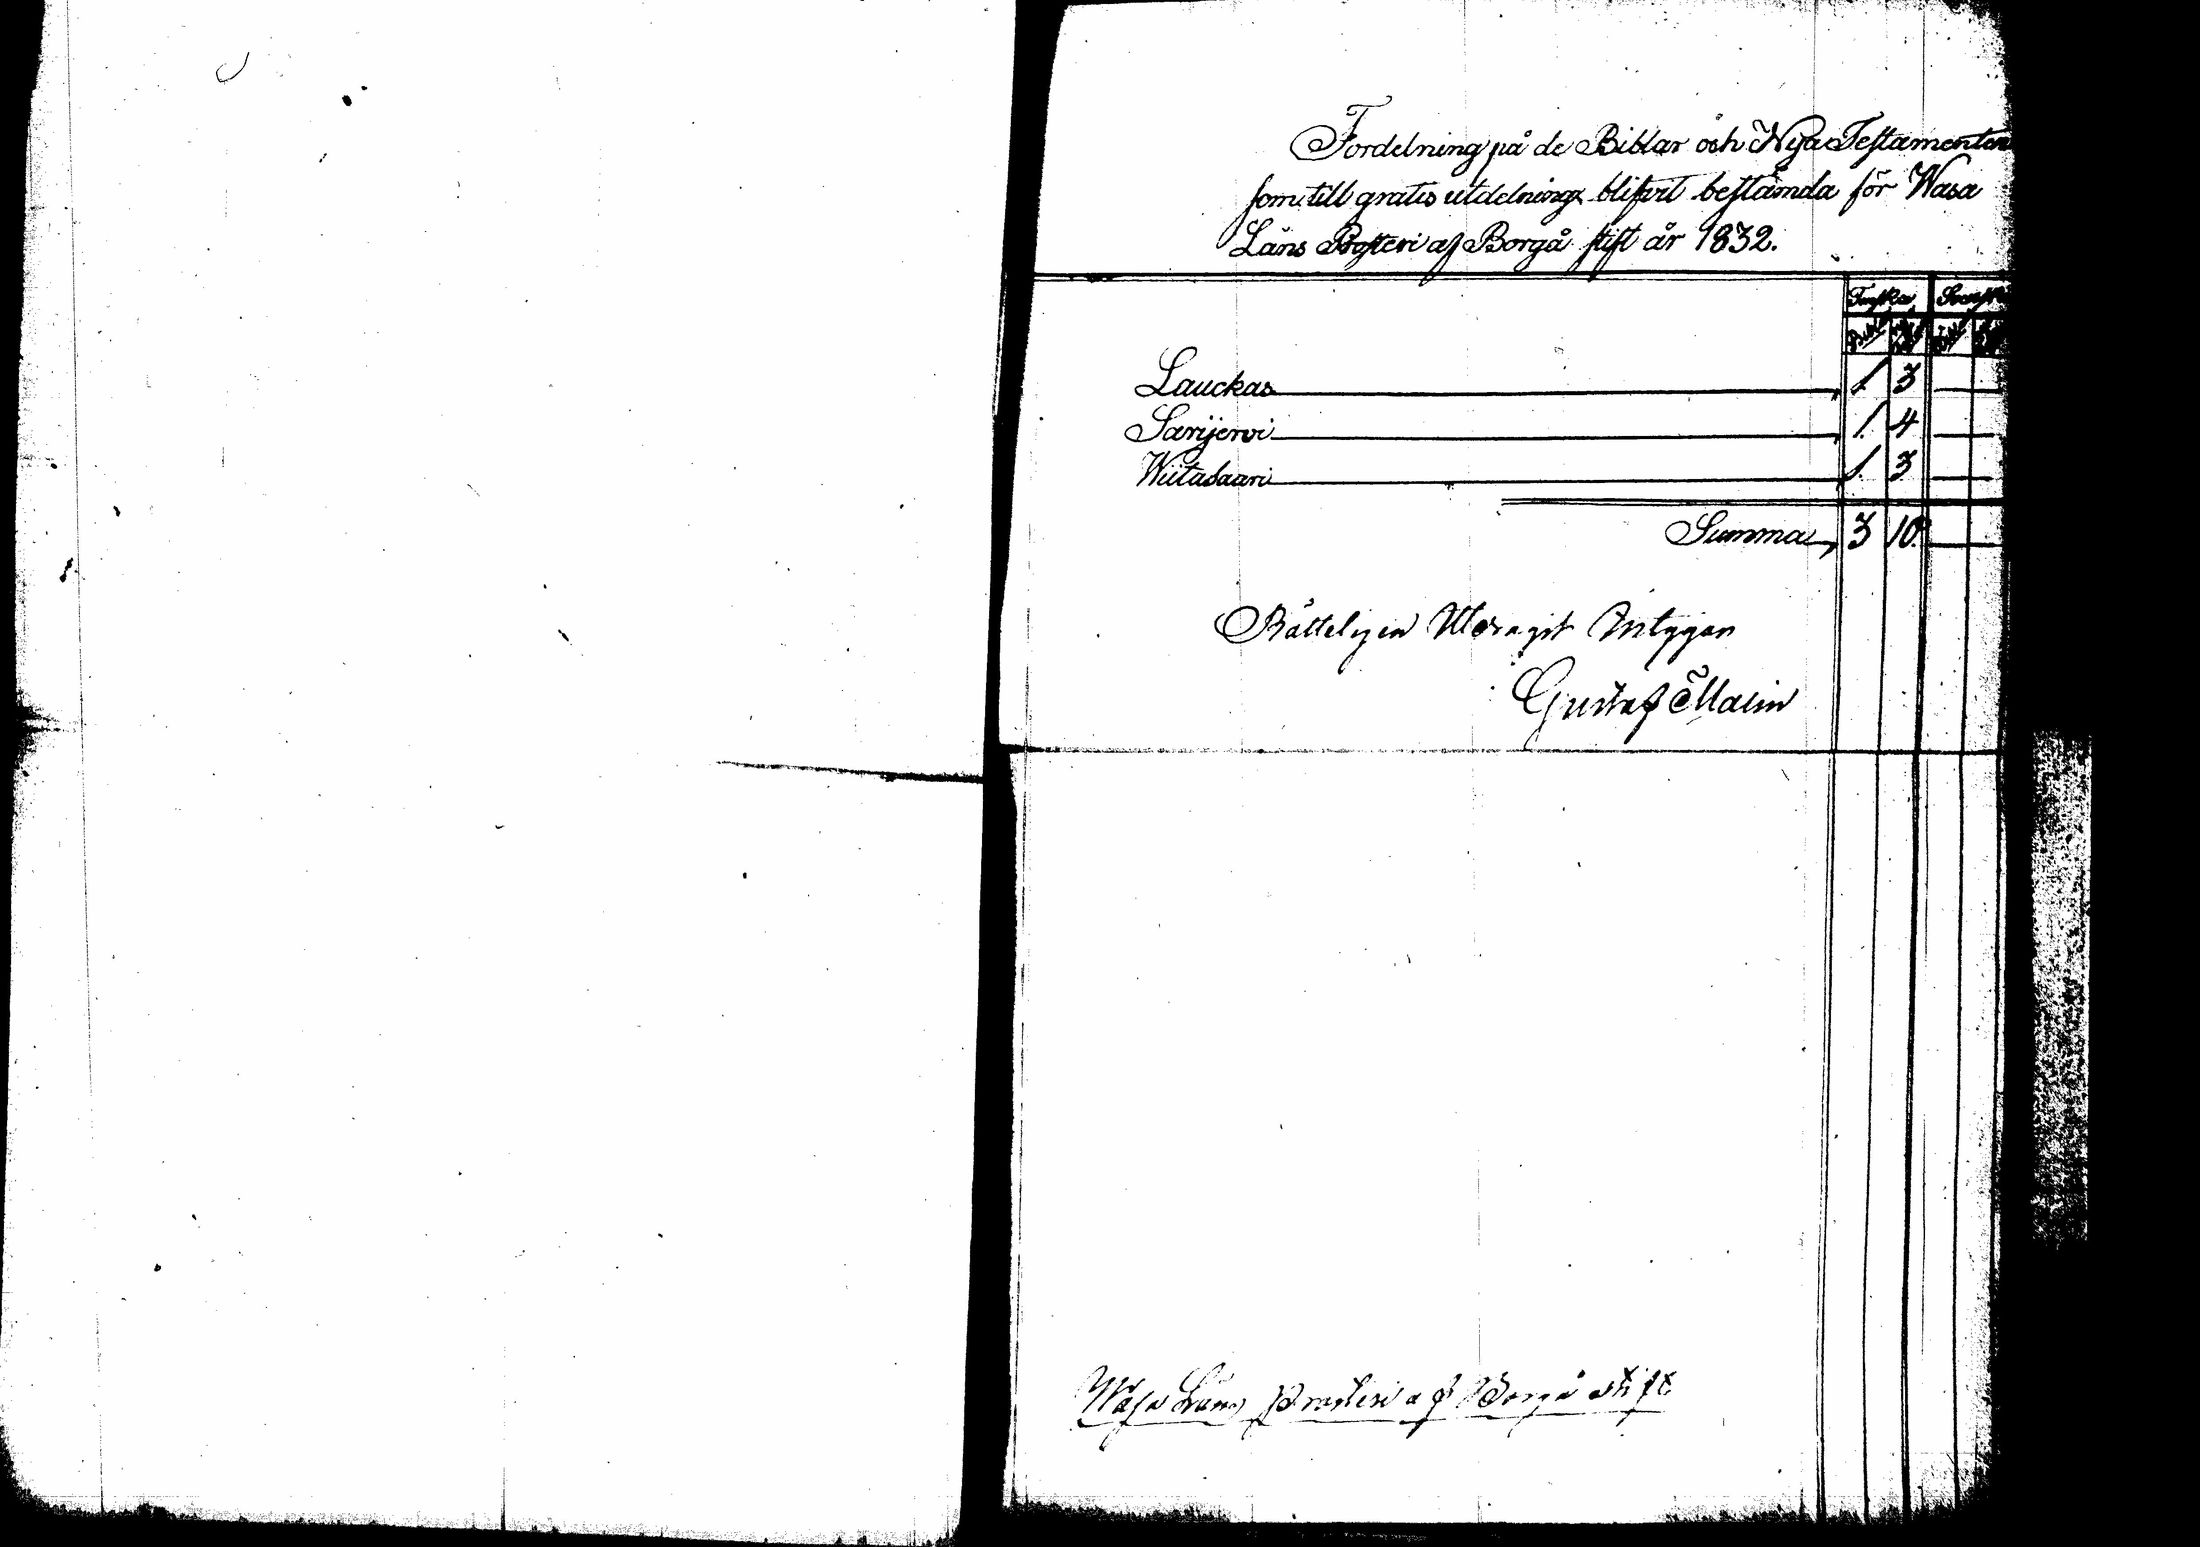 Fördelning på de Biblar och Nya Testamenten
som till gratis utdelning blifvit bestämda för Wasa
Läns Prosteri af Borgå stift år 1832.
Finska Svenska
Bibl
Lauckas 1. 3 — —
Sarijervi 1. 4 — —
Wiitasaari 1. 3 — —
Summa 3 10. — —
Intygar
Gustaf Malm
Wasa Läns Prosteri af Borgå stift